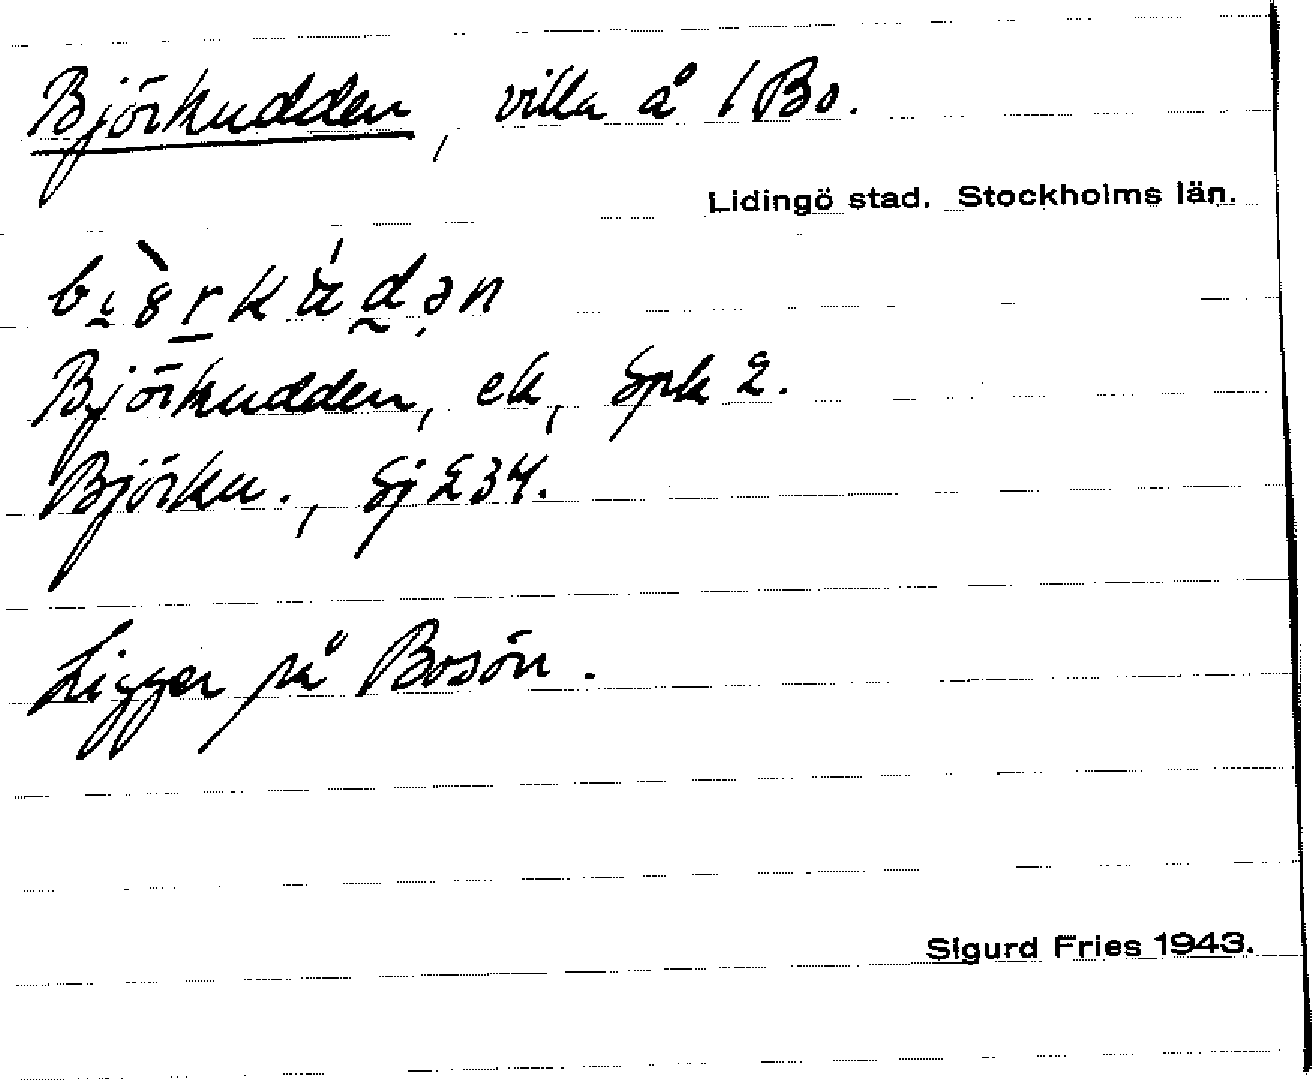 Björkudden, villa å 1 Bo.
Lidingö stad. Stockholms län.
Björkudden, ek, Spk 2.
Björku., Sj 234.
Ligger på Bosön.
Sigurd Fries 1943.